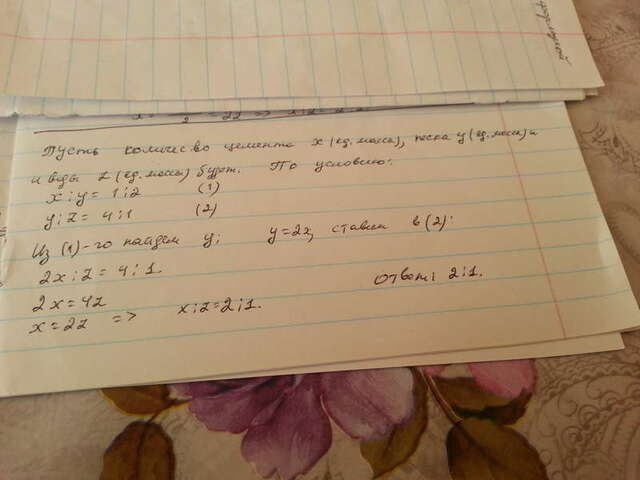 Пусть количесво цемента x (ед. массы), песка y (ед. массы) и
и воды z (ед. массы) будет. По условию:
x : y = 1 : 2 (1)
y : z = 4 : 1 (2)
Из (1)-го найдем y; y = 2x, ставим в (2):
2x : z = 4 : 1.
2x = 4z
x = 2z => x : z = 2 : 1.
Ответ: 2 : 1.